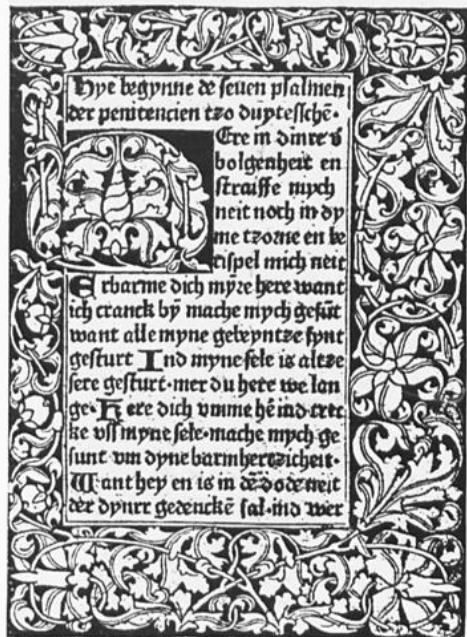 Hye begynne de seuen psalmen
der penitencien tzo duytesschē.
Ere in dinre v̄
bolgenheit en
straiffe mych
neit noch in dy
me tzorne en be
rispel mich neit
Erbarme dich myre here want
ich cranck by̅ mache mych gesūt
want alle myne gebeyntze synt
gesturt Ind myne sele is altze
sere gesturt·mer du here we lan
ge·Here dich vmme hē ind trec
ke vss myne sele·mache mych ge
sunt vm dyne barmhertzicheit·
Want hey en is in dē dode neit
der dynrr gedenckē sal·ind wer